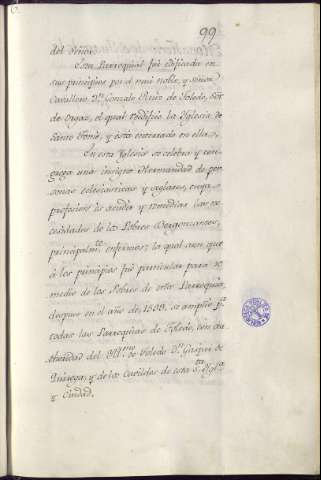 99
del Señor.
Esta Parroquial fue edificada en
sus principios por el mui noble, y señor
Cavallero Dn. Gonzalo Ruiz de Toledo, Sor
de Orgaz, el qual reedificó la Iglesia de
Santo Thomé, y está enterrado en ella.
En esta Yglesia se celebra y con-
grega una insigne Hermandad de per-
sonas eclesiasticas y seglares, cuya
profesion es acudir y remediar las ne-
cesidades de los Pobres Vergonzantes,
principalmte enfermos; la qual aun que
á los principios fue particular para re
medio de los Pobres de esta Parroquia,
despues en el año de 1589, se amplió pa
todas las Parroquias de Toledo, con au
thoridad del Yllmo de Toledo Dn. Gaspar de
Quiroga, y de los Cavildos de esta Sta Yglª
y Ciudad.